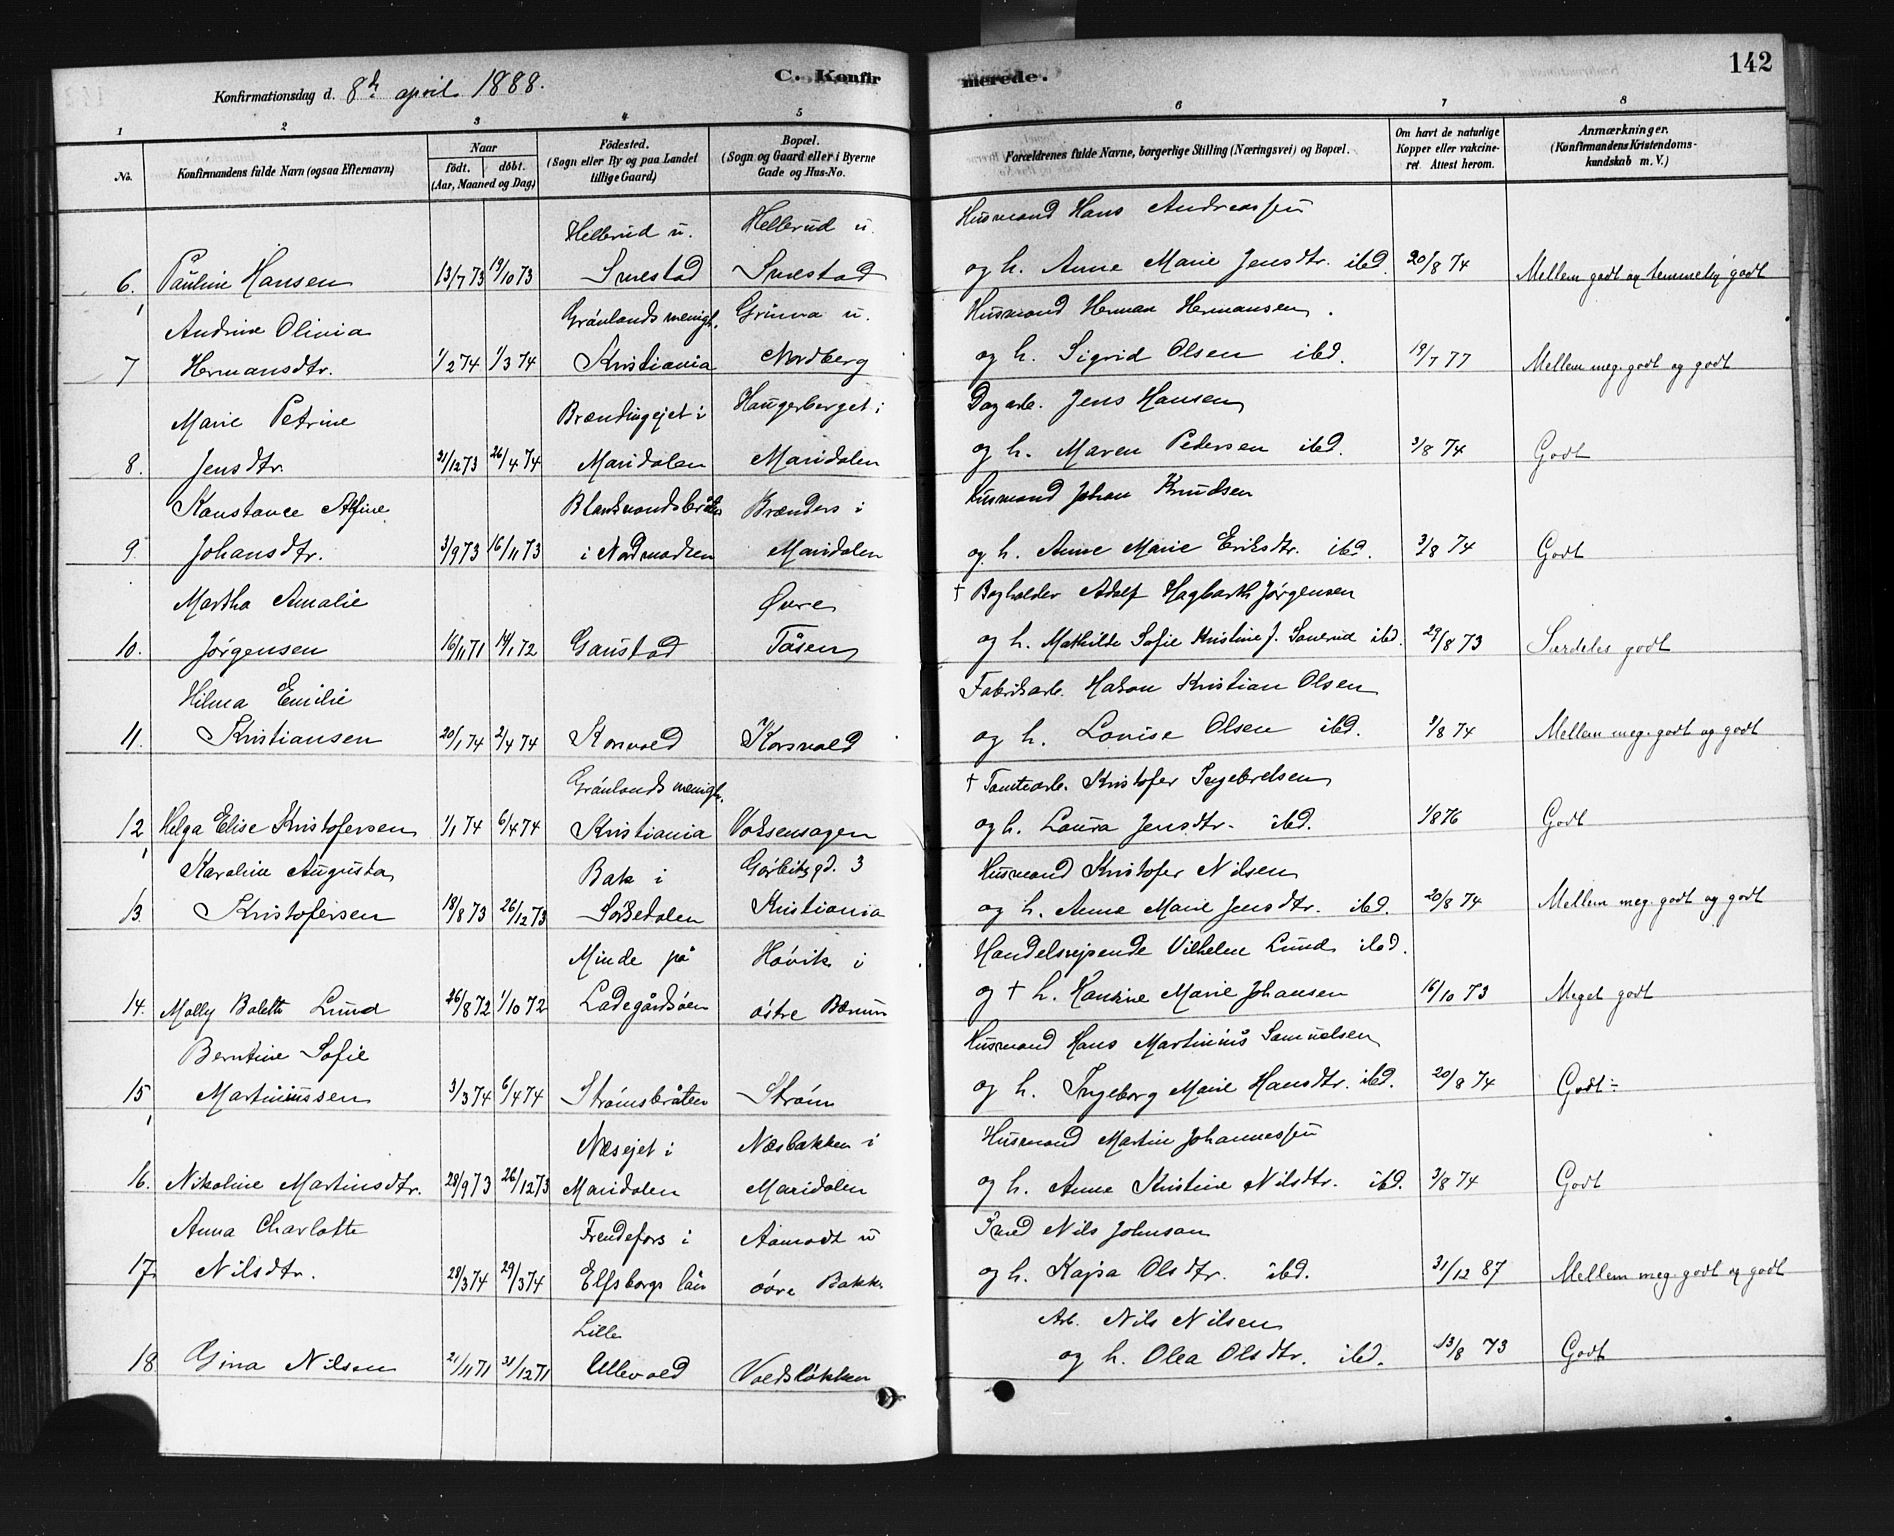 Konfirmationsdag d. 8de april 1888.
C. Konfirmerede.
142
1 2 3 4 5 6 7 8
No.
Konfirmandens fulde Navn (ogsaa Efternavn)
Naar
født. døbt.
(Aar, Maaned og Dag)
Fødested.
(Sogn eller By og paa Landet
tillige Gaard)
Bopæl.
(Sogn og Gaard eller i Byerne
Gade og Hus-No.
Forældrenes fulde Navne, borgerlige Stilling (Næringsvei) og Bopæl.
Om havt de naturlige
Kopper eller vakcine-
ret Attest herom.
Anmærkninger.
(Konfirmandens Kristendoms-
kundskab m. V.)
Hellerud u. Hellerud u. Husmand Hans Andreassen
6. Pauline Hansen 13/7 73 19/10 73 Smestad Smestad og h. Anne Marie Jensdtr. ibd. 20/8 74 Mellem godt og temmelig godt
Andrine Olivia Grønlands menigh. Grinna u. Husmand Herman Hermansen.
7 Hermansdtr. 1/2 74 1/3 74 Kristiania Nordberg og h. Sigrid Olsen ibd. 19/7 77 Mellem meg. godt og godt
Marie Petrine Brændingejet i Haugerberget i Dagarb. Jens Hansen
8. Jensdtr. 21/12 73 26/4 74 Maridalen Maridalen og h. Maren Pedersen ibd. 3/8 74 Godt
Konstance Alfine Blankvandsbråten Brænders i Husmand Johan Knudsen
9 Johansdtr. 3/9 73 16/11 73 i Nordmarken Maridalen og h. Anne Marie Eriksdtr. ibd. 3/8 74 Godt
Martha Amalie Øvre † Bogholder Adolf Hagbarth Jørgensen
10. Jørgensen 16/11 71 14/1 72 Gaustad Tåsen og h. Mathilde Sofie Kristine J. Sanerud ibd. 29/8 73 Særdeles godt
Hilma Emilie Fabrikarb. Hakon Kristian Olsen
11. Kristiansen 20/1 74 2/4 74 Korsvold Korsvold og h. Lovise Olsen ibd. 3/8 74 Mellem meg. godt og godt
Grønlands menigh. † Tomtearb. Kristofer Ingebretsen
12 Helga Elise Kristofersen 1/1 74 6/4 74 Kristiania Voksensagen og h. Laura Jensdtr. ibd. 1/8 76 Godt
Karoline Augusta Bak i Gørbitzgd. 3 Husmand Kristofer Nilsen
13 Kristofersen 18/8 73 26/12 73 Sørkedalen Kristiania og h. Anne Marie Jensdtr. ibd. 20/8 74 Mellem meg. godt og godt
Minde på Høvik i Handelsrejsende Vilhelm Lund ibd.
14. Molly Bolette Lund 26/8 72 1/10 72 Ladegårdsøen østre Bærum og † h. Hansine Marie Johansen 16/10 73 Meget godt
Berntine Sofie Husmand Hans Martinius Samuelsen
15 Martiniussen 3/3 74 6/4 74 Strømsbråten Strøm og h. Ingeborg Marie Hansdtr. ibd. 20/8 74 Godt
Næsejet i Næsbakken i Husmand Martin Johannessen
16. Nikoline Martinsdtr. 28/9 73 26/12 73 Maridalen Maridalen og h. Anne Kristine Nilsdtr. ibd. 3/8 74 Godt
Anna Charlotte Frendefors i Aamodt u Smed Nils Johnson
17. Nilsdtr. 28/3 74 29/3 74 Elfsborgs län øvre Bakk. og h. Kajsa Olsdtr. ibd. 31/12 87 Mellem meg. godt og godt
Lille Arb. Nils Nilsen
18 Gina Nilsen 21/11 71 31/12 71 Ullevold Voldsløkken og h. Olea Olsdtr. ibd. 13/8 73 Godt